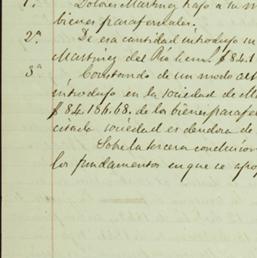 1.ª Dolores Martinez bajo a su m
bienes parafernales.
2.ª De esa cantidad introdujo su
Martinez del Rio hem.l $ 84.1
3.ª Constando de un modo aut
introdujo en la sociedad de Ma
$ 84.156.68. de los bienes parafer
citada sociedad es deudora de
Sobre la tercera conclusion
los fundamentos en que se apoy